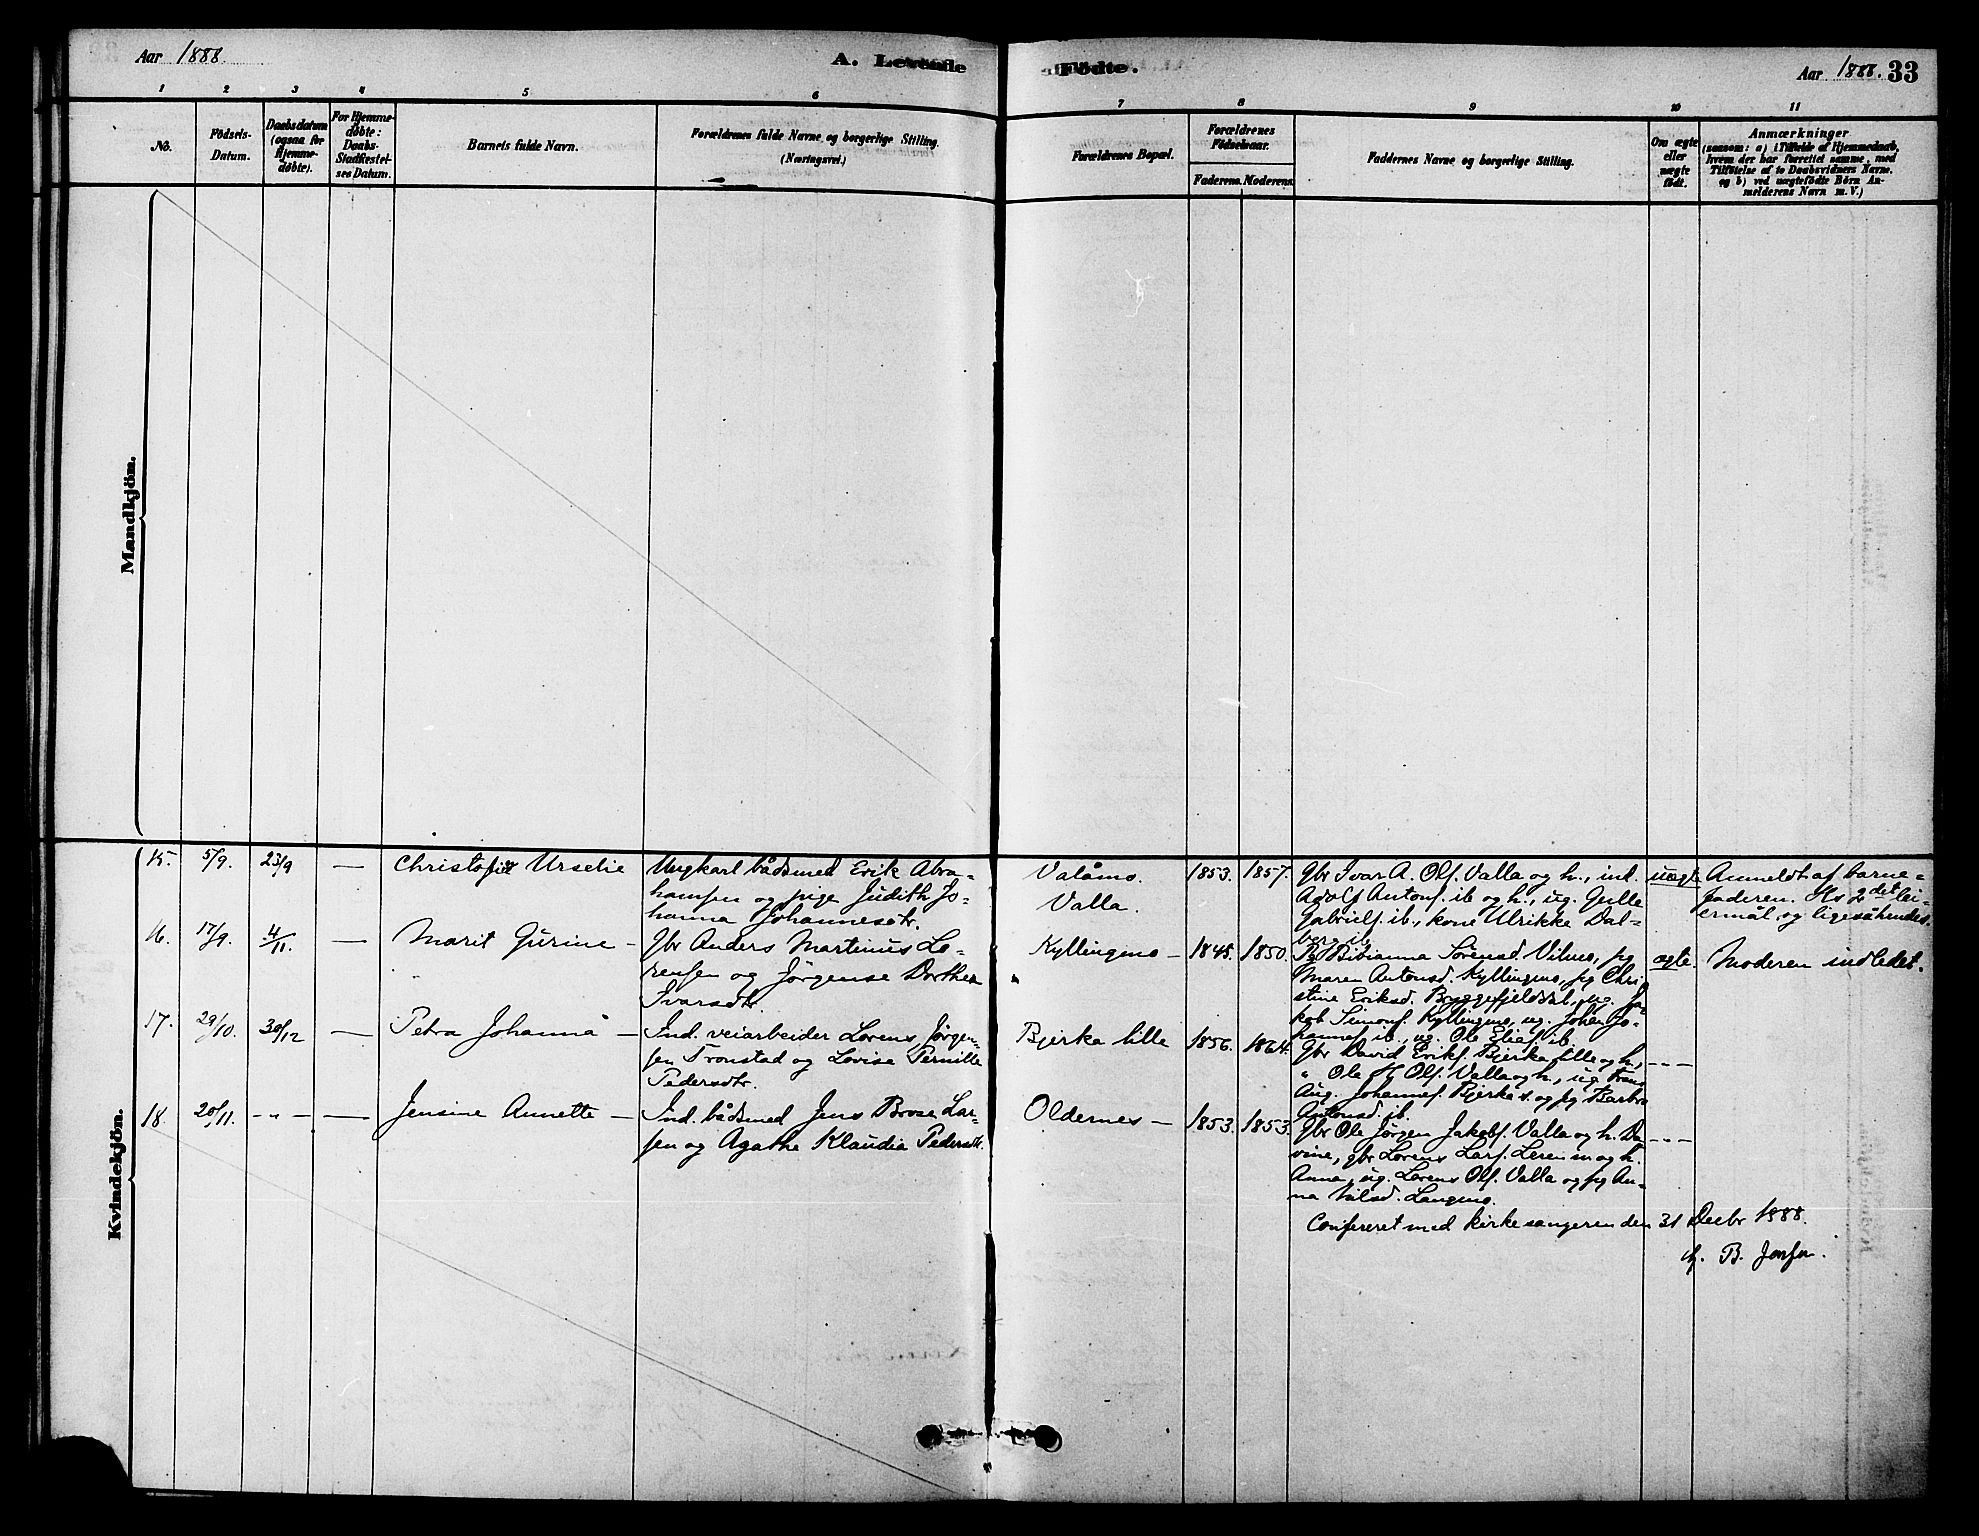 Aar 1888.
A. Levende
Fødte.
Aar 1888. 33
1 2 3 4 5 6 7 8 9 10 11
No.
Fødsels-
Datum.
Daabsdatum
(ogsaa for
Hjemme-
døbte).
For Hjemme-
døbte:
Daabs-
Stadfæstel-
ses Datum.
Barnets fulde Navn.
Forældrenes fulde Navne og borgerlige Stilling.
(Næringsvei.)
Forældrenes Bopæl.
Forældrenes
Fødselsaar.
Faderens. Moderens.
Faddernes Navne og borgerlige Stilling.
Om ægte
eller
uægte
født.
Anmærkninger
(saasom: a) i Tilfælde af Hjemmedaab,
hvem der har forrettet samme, med
Tilføielse af to Daabsvidners Navne,
og b) ved uægtefødte Børn An-
melderens Navn m. V.)
Mandkjön.
Kvindekjön.
15. 5/9. 23/9 — Urselie
Ungkarl bådsmed Erik Abra-
hamsen og pige Judith Jo-
hanna Johannesdtr.
Valåmo.
Valla.
1853. 1857.
Gbr Ivar A. Ols. Valla og h., ind.
Adolf Antons. ib og h., ug.
Gabriels. ib., kone Ulrikke Dal-
berg ib.
uægte
Anmeldt af barne-
faderen. Hs 2det lei-
ermål og ligesåhendes.
16. 17/9. 4/11. — Marit Gurine —
Gbr Anders Martinus Lo-
rensen og Jørgense Dorthea
Ivarsdtr.
Kyllingmo —
1845. 1850.
Pg Bibianna Sørensd. Vilmo, pg
Maren Antonsd. Kyllingmo, pg Chri
stine Eriksd. ug. Ja
kob Simons. Kyllingmo, ug. Johan Jo-
hannes ib., ug. Ole Elias. ib.
ægte.
Moderen indledet.
17. 29/10. 30/12 — Petra Johanna —
Ind. veiarbeider Lorens Jørgen-
sen Tronstad og Lovise Pernille
Pedersdtr.
Bjerka lille
1856. 1864.
Gbr David Eriks. Bjerka lille og h.,
" Ole H. Ols. Valla og h., ug Frans
Aug. Johannes. Bjerka s. og pg Barbro
Antonsd. ib.
- - -
18. 20/11. - " - — Jensine Annette —
Ind. bådsmed Jens Brose Lar-
sen og Agathe Klaudia Pedersdtr.
Oldernes —
1853. 1853.
Gbr Ole Jørgen Jakobs. Valla og h. Da
vine, gbr Lorens Lars. og h.
Anna, ug. Lorens Ols. Valla og pg An-
na Langmo.
- - -
Confereret med kirkesangeren den 31 Decbr 1888.
B. Jensen.